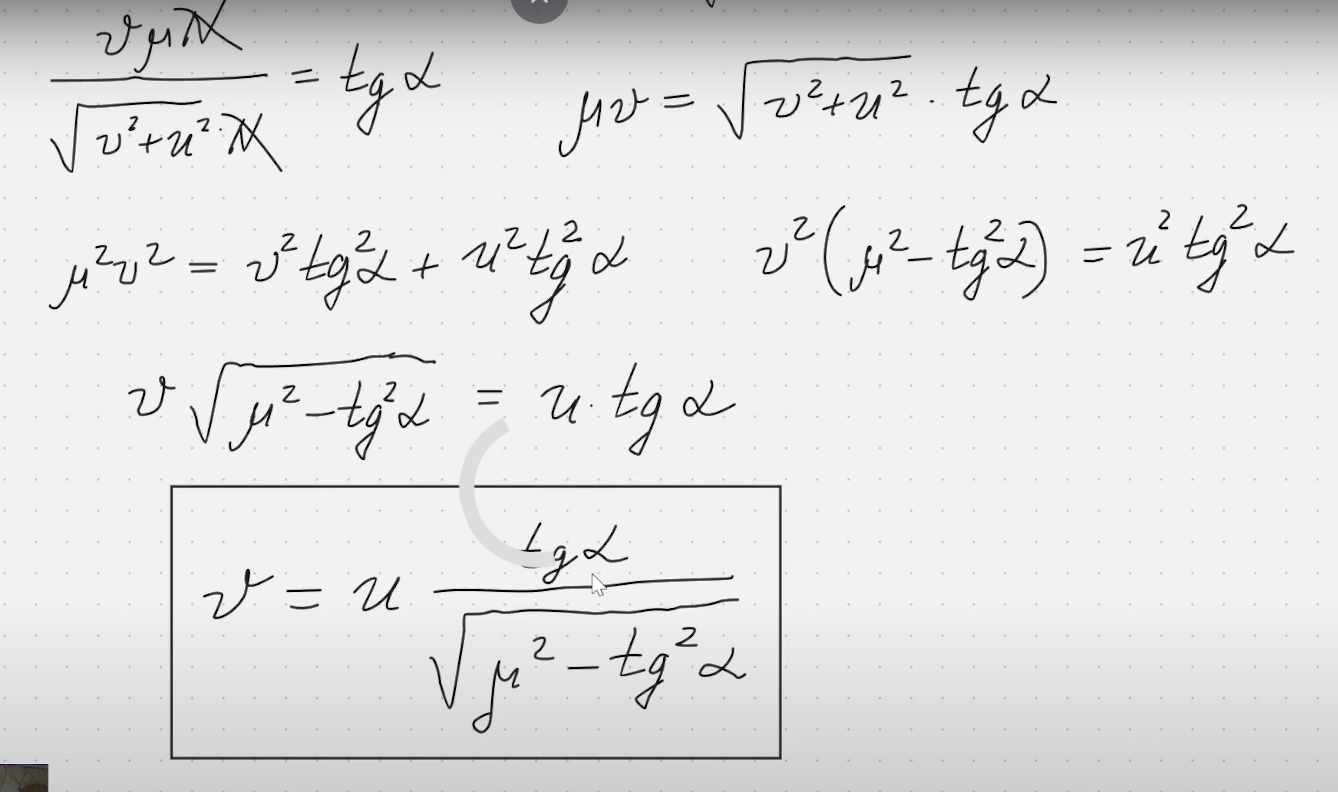 vμN/√(v²+u²·N) = tgα    μv = √(v²+u²) · tgα
μ²v² = v²tg²α + u²tg²α    v²(μ²−tg²α) = u²tg²α
v√(μ²−tg²α) = u·tgα
v = u tgα/√(μ²−tg²α)